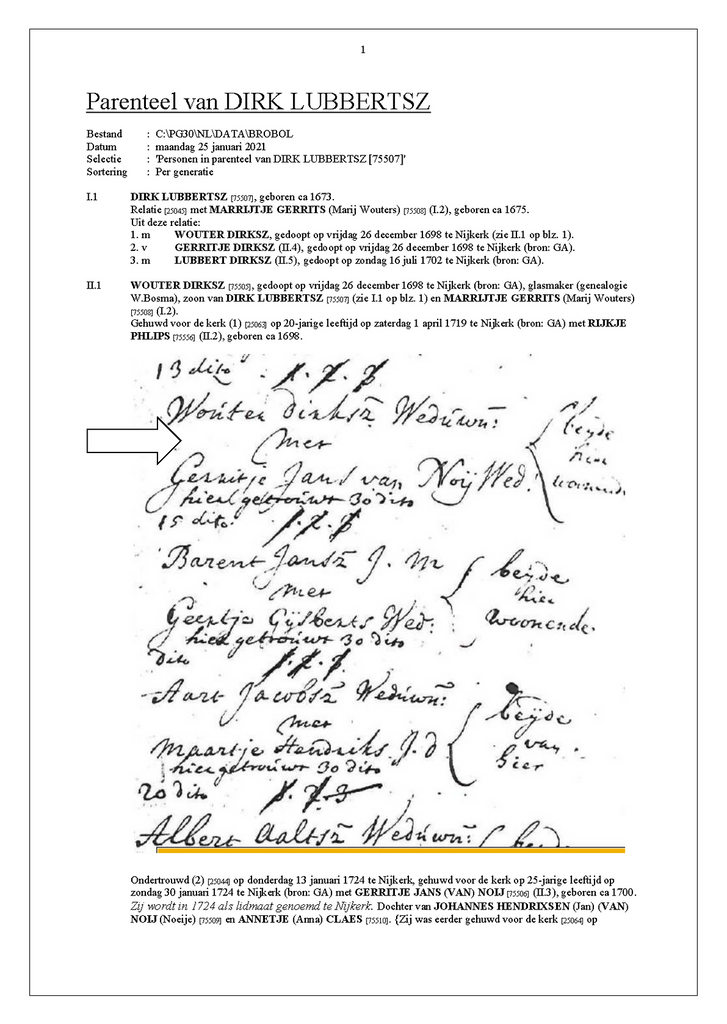 1
Parenteel van DIRK LUBBERTSZ
Bestand : C:\PG30\NL\DATA\BROBOL
Datum : maandag 25 januari 2021
Selectie : 'Personen in parenteel van DIRK LUBBERTSZ [75507]'
Sortering : Per generatie
I.1 DIRK LUBBERTSZ [75507], geboren ca 1673.
Relatie [25045] met MARRIJTJE GERRITS (Marij Wouters) [75508] (I.2), geboren ca 1675.
Uit deze relatie:
1. m WOUTER DIRKSZ, gedoopt op vrijdag 26 december 1698 te Nijkerk (zie II.1 op blz. 1).
2. v GERRITJE DIRKSZ (II.4), gedoopt op vrijdag 26 december 1698 te Nijkerk (bron: GA).
3. m LUBBERT DIRKSZ (II.5), gedoopt op zondag 16 juli 1702 te Nijkerk (bron: GA).
II.1 WOUTER DIRKSZ [75505], gedoopt op vrijdag 26 december 1698 te Nijkerk (bron: GA), glasmaker (genealogie
W.Bosma), zoon van DIRK LUBBERTSZ [75507] (zie I.1 op blz. 1) en MARRIJTJE GERRITS (Marij Wouters)
[75508] (I.2).
Gehuwd voor de kerk (1) [25063] op 20-jarige leeftijd op zaterdag 1 april 1719 te Nijkerk (bron: GA) met RIJKJE
PHLIPS [75556] (II.2), geboren ca 1698.
13 dito
Wouter Dirksz Weduwn: beyde
met hier
Gerritje Jans van Noij Wed: woonende
hier getrouwt 30 dito
15 dito.
Barent Jansz J. M beyde
met hier
Geertje Gijsberts Wed: woonende.
hier getrouwt 30 dito
dito
Aart Jacobsz Weduwn: beyde
met van
Maartje Hendriks J. d hier
hier getrouwt 30 dito
20 dito
Albert Aaltsz Weduwn:
Ondertrouwd (2) [25044] op donderdag 13 januari 1724 te Nijkerk, gehuwd voor de kerk op 25-jarige leeftijd op
zondag 30 januari 1724 te Nijkerk (bron: GA) met GERRITJE JANS (VAN) NOIJ [75506] (II.3), geboren ca 1700.
Zij wordt in 1724 als lidmaat genoemd te Nijkerk. Dochter van JOHANNES HENDRIXSEN (Jan) (VAN)
NOIJ (Noeije) [75509] en ANNETJE (Anna) CLAES [75510]. {Zij was eerder gehuwd voor de kerk [25064] op